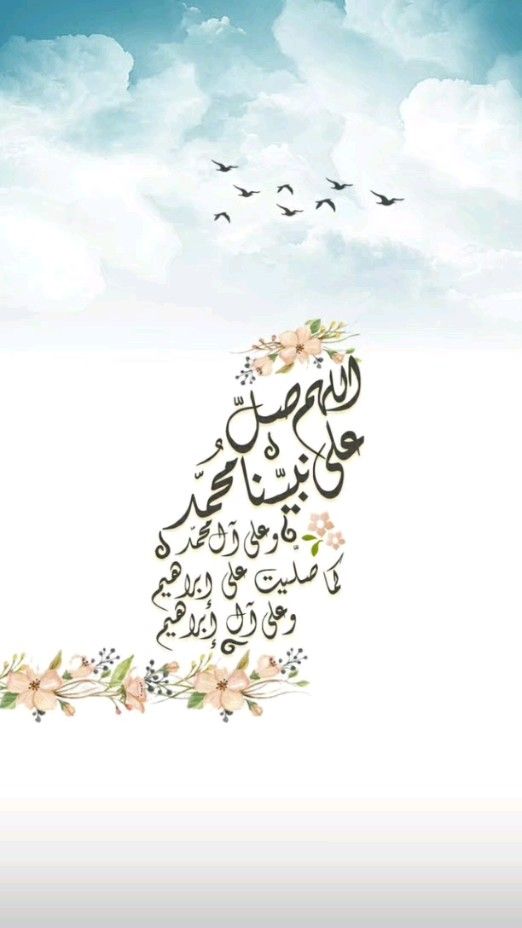 اللهم صلّ
على نبيّنا محمّد
وعلى آل محمّد
كما صلّيت على إبراهيم
وعلى آل إبراهيم